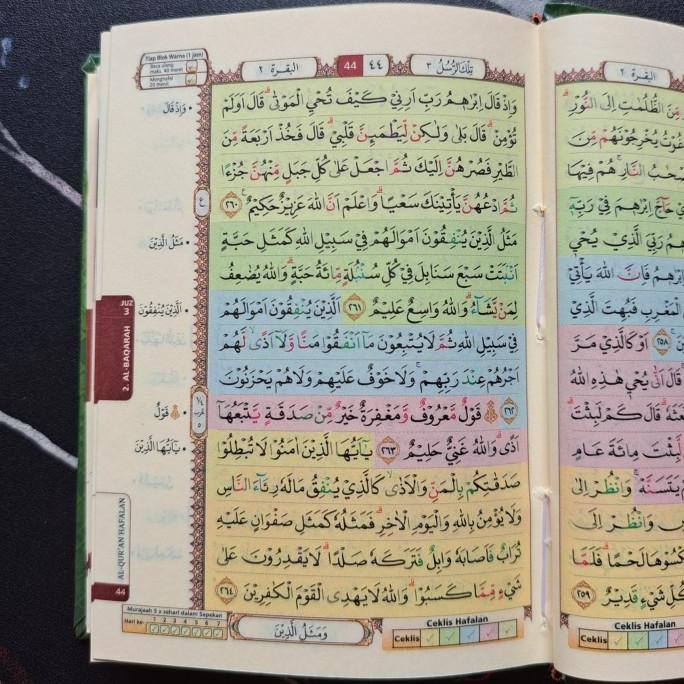 Tiap Blok Warna (1 jam)
Baca ulang
maks. 40 menit
Menghafal
20 menit
البقرة ٢
44 ٤٤
تِلْكَ الرُّسُلُ ٣
وَاِذْ قَالَ اِبْرٰهٖمُ رَبِّ اَرِنِيْ كَيْفَ تُحْيِ الْمَوْتٰىۗ قَالَ اَوَلَمْ
تُؤْمِنْۗ قَالَ بَلٰى وَلٰكِنْ لِّيَطْمَىِٕنَّ قَلْبِيْۗ قَالَ فَخُذْ اَرْبَعَةً مِّنَ
الطَّيْرِ فَصُرْهُنَّ اِلَيْكَ ثُمَّ اجْعَلْ عَلٰى كُلِّ جَبَلٍ مِّنْهُنَّ جُزْءًا
ثُمَّ ادْعُهُنَّ يَأْتِيْنَكَ سَعْيًاۗ وَاعْلَمْ اَنَّ اللّٰهَ عَزِيْزٌ حَكِيْمٌ ࣖ ٢٦٠
مَثَلُ الَّذِيْنَ يُنْفِقُوْنَ اَمْوَالَهُمْ فِيْ سَبِيْلِ اللّٰهِ كَمَثَلِ حَبَّةٍ
اَنْۢبَتَتْ سَبْعَ سَنَابِلَ فِيْ كُلِّ سُنْۢبُلَةٍ مِّائَةُ حَبَّةٍۗ وَاللّٰهُ يُضٰعِفُ
لِمَنْ يَّشَاۤءُۗ وَاللّٰهُ وَاسِعٌ عَلِيْمٌ ٢٦١ اَلَّذِيْنَ يُنْفِقُوْنَ اَمْوَالَهُمْ
فِيْ سَبِيْلِ اللّٰهِ ثُمَّ لَا يُتْبِعُوْنَ مَآ اَنْفَقُوْا مَنًّا وَّلَآ اَذًىۙ لَّهُمْ
اَجْرُهُمْ عِنْدَ رَبِّهِمْۚ وَلَا خَوْفٌ عَلَيْهِمْ وَلَا هُمْ يَحْزَنُوْنَ
٢٦٢ ۞ قَوْلٌ مَّعْرُوْفٌ وَّمَغْفِرَةٌ خَيْرٌ مِّنْ صَدَقَةٍ يَّتْبَعُهَآ
اَذًىۗ وَاللّٰهُ غَنِيٌّ حَلِيْمٌ ٢٦٣ يٰٓاَيُّهَا الَّذِيْنَ اٰمَنُوْا لَا تُبْطِلُوْا
صَدَقٰتِكُمْ بِالْمَنِّ وَالْاَذٰىۙ كَالَّذِيْ يُنْفِقُ مَالَهٗ رِئَاۤءَ النَّاسِ
وَلَا يُؤْمِنُ بِاللّٰهِ وَالْيَوْمِ الْاٰخِرِۗ فَمَثَلُهٗ كَمَثَلِ صَفْوَانٍ عَلَيْهِ
تُرَابٌ فَاَصَابَهٗ وَابِلٌ فَتَرَكَهٗ صَلْدًاۗ لَا يَقْدِرُوْنَ عَلٰى
شَيْءٍ مِّمَّا كَسَبُوْاۗ وَاللّٰهُ لَا يَهْدِى الْقَوْمَ الْكٰفِرِيْنَ ٢٦٤
وَاِذْ قَالَ
ع
مَثَلُ الَّذِيْنَ
اَلَّذِيْنَ يُنْفِقُوْنَ
۞ قَوْلٌ
يٰٓاَيُّهَا الَّذِيْنَ
JUZ
3
2. AL-BAQARAH
AL-QUR'AN HAFALAN
44
Murajaah 5 x sehari dalam Sepekan
Hari ke-
1 2 3 4 5 6 7
وَمَثَلُ الَّذِيْنَ
Ceklis Hafalan
Ceklis
البقرة ٢
مِّنَ الظُّلُمٰتِ اِلَى النُّوْرِ
يُخْرِجُوْنَهُمْ مِّنَ
النَّارِۚ هُمْ فِيْهَا
حَاۤجَّ اِبْرٰهٖمَ فِيْ رَبِّهٖٓ
رَبِّيَ الَّذِيْ يُحْيٖ
فَاِنَّ اللّٰهَ يَأْتِيْ
الْمَغْرِبِ فَبُهِتَ الَّذِيْ
٢٥٨ اَوْ كَالَّذِيْ مَرَّ
قَالَ اَنّٰى يُحْيٖ هٰذِهِ اللّٰهُ
قَالَ كَمْ لَبِثْتَ
لَّبِثْتَ مِائَةَ عَامٍ
يَتَسَنَّهْۚ وَانْظُرْ اِلٰى
وَانْظُرْ اِلَى
نَكْسُوْهَا لَحْمًاۗ فَلَمَّا
كُلِّ شَيْءٍ قَدِيْرٌ ٢٥٩
Ceklis Hafalan
Ceklis